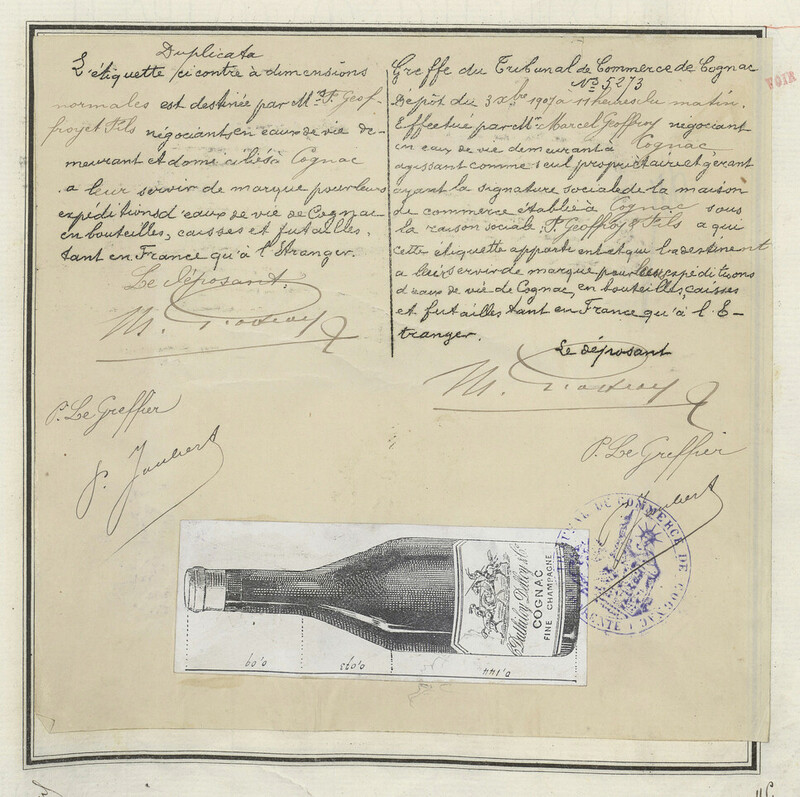 Duplicata
L'étiquette ci contre à dimensions
normales est destinée par Mrs F. Geof-
froy et Fils négociant en eaux de vie de-
meurant et domiciliés à Cognac
a leur servir de marque pour leurs
expéditions d'eaux de vie de Cognac
en bouteilles, caisses et futailles,
tant en France qu'à l'Etranger.
Le déposant.
M. Geoffroy
P. Le Greffier
P. Joubert
Greffe du Tribunal de Commerce de Cognac
No 5,273
Dépôt du 3 Xbre 1907 a 11 heures du matin.
Effectué par Mr Marcel Geoffroy négociant
en eaux de vie demeurant à Cognac,
agissant comme seul propriétaire et gérant
ayant la signature sociale de la maison
de commerce établie à Cognac sous
la raison sociale: F. Geoffroy & Fils a qui
cette étiquette appartient et qui la destinent
a leur servir de marque pour leurs expéditions
d'eaux de vie de Cognac, en bouteilles, caisses
et futailles tant en France qu'à l'E-
tranger.
Le déposant
M. Geoffroy
P. Le Greffier
Joubert
TRIBUNAL DE COMMERCE DE COGNAC
COGNAC
FINE CHAMPAGNE
0,09
0,093
0,144
VOIR